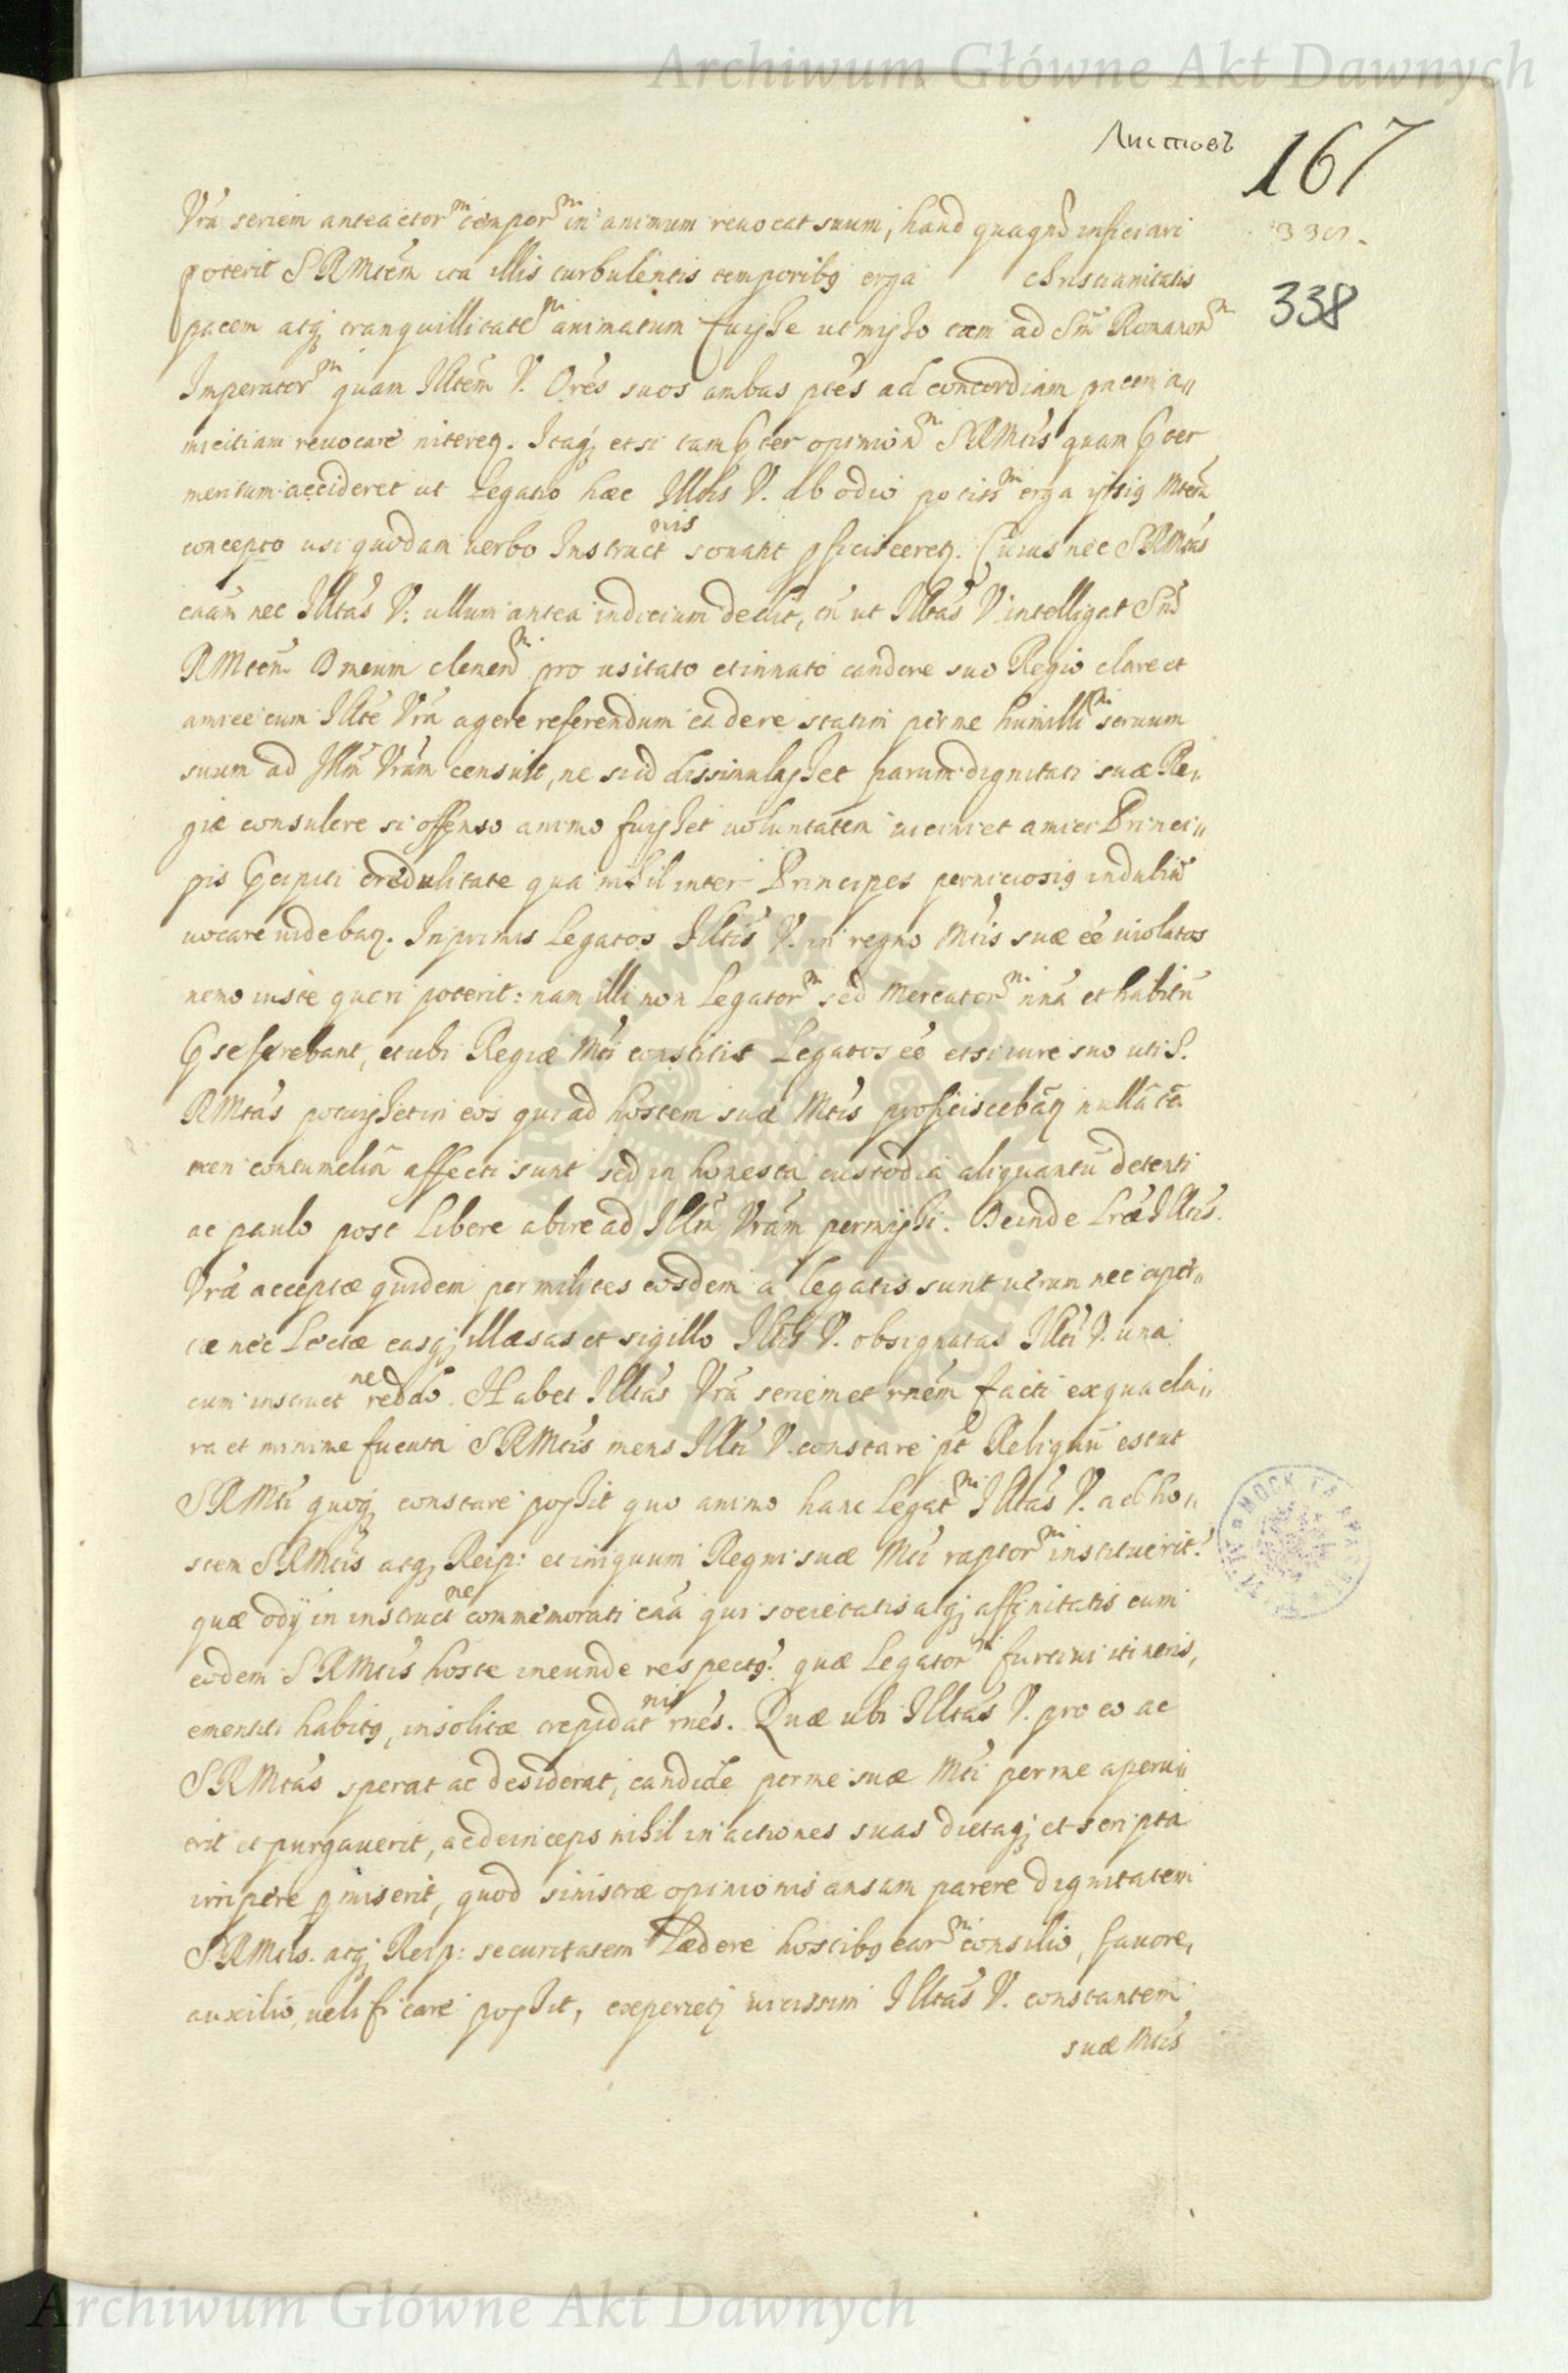 Archiwum Główne Akt Dawnych
Листовъ 167
338
Vrã seriem anteactor^m tempor^m in animum reuocat suum, haud quaqñ inficiari
poterit SRMtem ita illis turbulentis temporibg erga christianitatis
pacem atq tranquillitate^m animatum fuisse ut misso tam ad Sm̃ Romanor^m
Imperator^m quam Illtem V. Ores suos ambas ptes ad concordiam pacem a„
micitiam reuocare niteretz. Itaq etsi tam pter opinion^m SRMtis quam pter
meritum accideret ut Legatio hæc Illtis V. ab odio potiss^m erga ipsig Mtem
concepto usi quodam uerbo Instruct^nis sonant pficisceretz. Cuius nec SRMtas
caãm nec Illtas V. ullum antea indicium dedit, tñ ut Illtas V intelligat Sñ
RMtem D meum clemen^m pro usitato et innato candore suo Regio clare et
amice cum Illte Vrã agere referendum ea de re statim per me humilli^m seruum
suum ad Illm̃ Vrãm censuit, ne si id dissimulasset parum dignitati suæ Re„
giæ consulere si offenso animo fuisset uoluntatem uicini et amici Princi„
pis pcipiti credulitate qua nihil inter Principes perniciosig in dubiũ
uocare uidebatz. Inprimis Legatos Illtis V. in regno Mtis suæ eẽ uiolatos
nemo iuste queri poterit: nam illi non Legator^m sed Mercator^m nña et habitũ
pseferebant, et ubi Regiæ Mti constitit Legatos eẽ etsi iure suo uti S.
RMtas potuisset in eos qui ad hostem suæ Mtis proficiscebãtz nulla tã
men contumelia affecti sunt sed in honesta custodia aliquantũ detenti
ac paulo post Libere abire ad Illm̃ Vrãm permissi. Deinde Lræ Illtis.
Vræ acceptæ quidem per milites eosdem a legatis sunt uerum nec aper„
tæ nec Lectæ easq illæsas et sigillo Illtis V. obsignatas Illti V. una
cum instruct^ne reddo. Habet Illtas Vrã seriem et rnem facti ex qua cla„
ra et minime fucata SRMtis mens Illti V. constare pt Reliquũ est ut
SRMti quoq constare possit quo animo hanc Legat^m Illtas V. ad ho„
stem SRMtis atq Reip: et iniquum Regni suæ Mti raptor^m instituerit?
quæ odij in instruct^ne commemorati caã qui societatis atq affinitatis cum
eodem SRMtis hoste ineundæ respectg? quæ Legator^m furtiui itineris,
ementiti habitg, insolitæ trepidat^nis rnes. Quæ ubi Illtas V. pro eo ac
SRMtas sperat ac desiderat, candide per me suæ Mti per me aperu„
erit et purgauerit, ac deinceps nihil in actiones suas dictaq et scripta
irripere pmiserit, quod sinistræ opinionis ansam parere dignitatem
SRMtis. atq Reip: securitatem Lædere hostibg ear^m consilio, fauore,
auxilio, uelificare possit, experietz uicissim Illtas V. constantem
suæ Mtis
Archiwum Główne Akt Dawnych